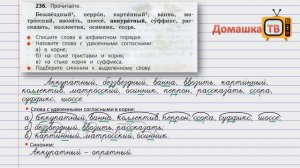 236. Прочитайте.
Беззвёздный², перрон, картинный², ванна, ма-
тросский, ввозить, шоссе, аккуратный, суффикс, рас-
сказать, коллектив, осинник, ссора.
Спишите слова в алфавитном порядке.
Назовите слова с удвоенными согласными:
а) в корне;
б) на стыке приставки и корня;
в) на стыке корня и суффикса.
Подберите синоним к выделенному слову.
Домашка
ТВ
Аккуратный, беззвёздный, ванна, ввозить, картинный,
коллектив, матросский, осинник, перрон, рассказать, ссора,
суффикс, шоссе.
Слова с удвоенными согласными в корне:
а) аккуратный, ванна, коллектив, перрон, ссора, суффикс, шоссе.
б) беззвёздный, ввозить, рассказать;
в) картинный, матросский, осинник.
Синоним:
Аккуратный – опрятный.